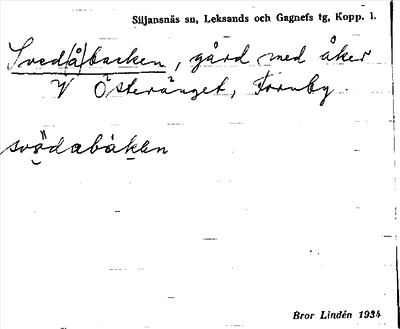 Siljansnäs sn, Leksands och Gagnefs tg, Kopp. l.
Sved/å/backen, gård med åker
V Österänget, Fornby.
svädabákan
Bror Lindén 1934